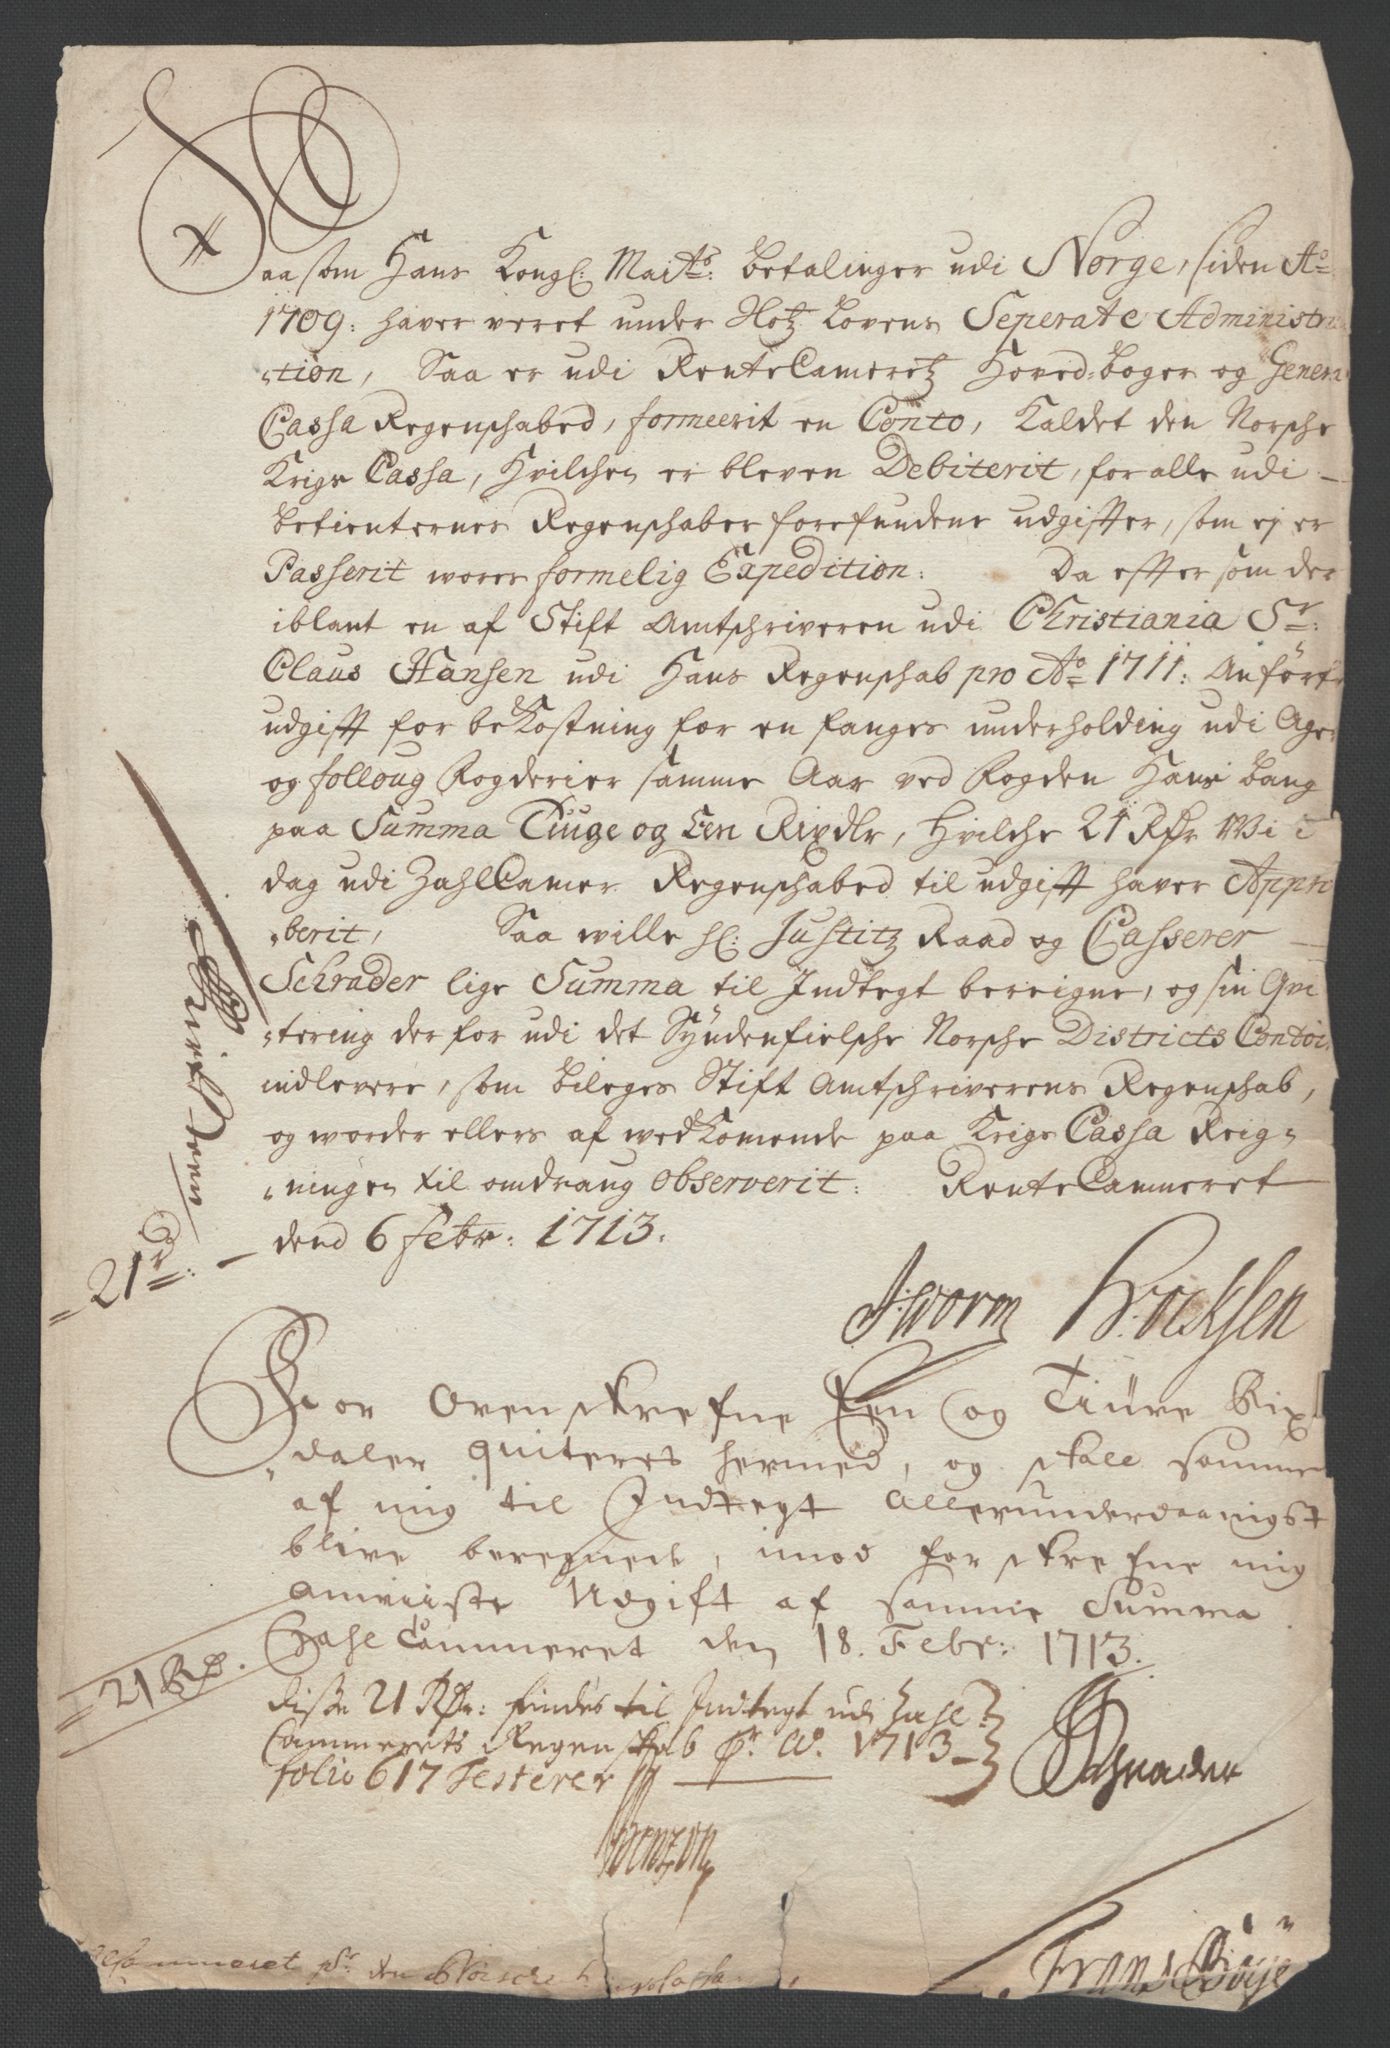 Saasom Hans Kongl: Maÿts: betalinger udi Norge, siden Ao
1709: haver veret under Hotz Lovens Seperate Administra
-tion, Saa er udi RenteCameretz Hoved-bøger og General
Cassa Regenschabed, formeerit en Conto, Kaldet den Norsche
Krigs Cassa, Hvilchen er bleven Debiterit, for alle udi
betienternes Regenschaber forefundene udgiffter, som ej er
Passerit wores formelig Expedition: Da effter som der
iblant en af Stift Amtschriveren udi Christiania Sr:
Claus Hansen udi Hans Regenschab pro Ao 1711: Anført
udgifft for beKostning for en fanges underholding udi Ager
og folloug fogderier samme Aar ved fogden Hans Bang
paa Summa Tiuge og Een Rixdlr, Hvilche 21 Rdr Wi i
dag udi ZahlCamer Regenschabed til udgifft haver Appro
-berit, Saa wille hl: Justitz Raad og Casserer
Schrader lige Summa til Indtegt bereigne, og sin Qvi
-tering der for udi det Syndenfielsche Norsche Districts Contoir
indlevere, som bileges Stift Amtschriverens Regenschab,
og worder ellers af wedKomende paa Krigs Cassa Reig-
-ningen til omdraug observerit: RenteCammeret
dend 6 Febr: 1713.
21 rd:
JWorm HBenssen
For Ovenskrefne Een og Tiuve Rix
-daler quiteres hermed, og skall samme
af mig til Indtegt allerunderdaanigst
blive beregnede, imod forskrefne mig
anviiste Udgift af samme Summa
Zahl Cammeret den 18. Febr: 1713.
21 Rd.
disse 21 Rdr: findes til Indtegt udi Zahl-
Cammerets Regenskab pr. Ao. 1713
folio 617 Testerer
Schrader
Benzon
Cammeret pr den Norsche
Frans Böÿe